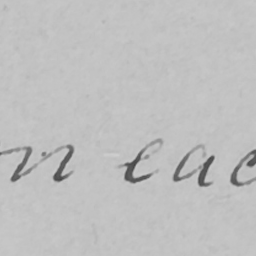 n eac